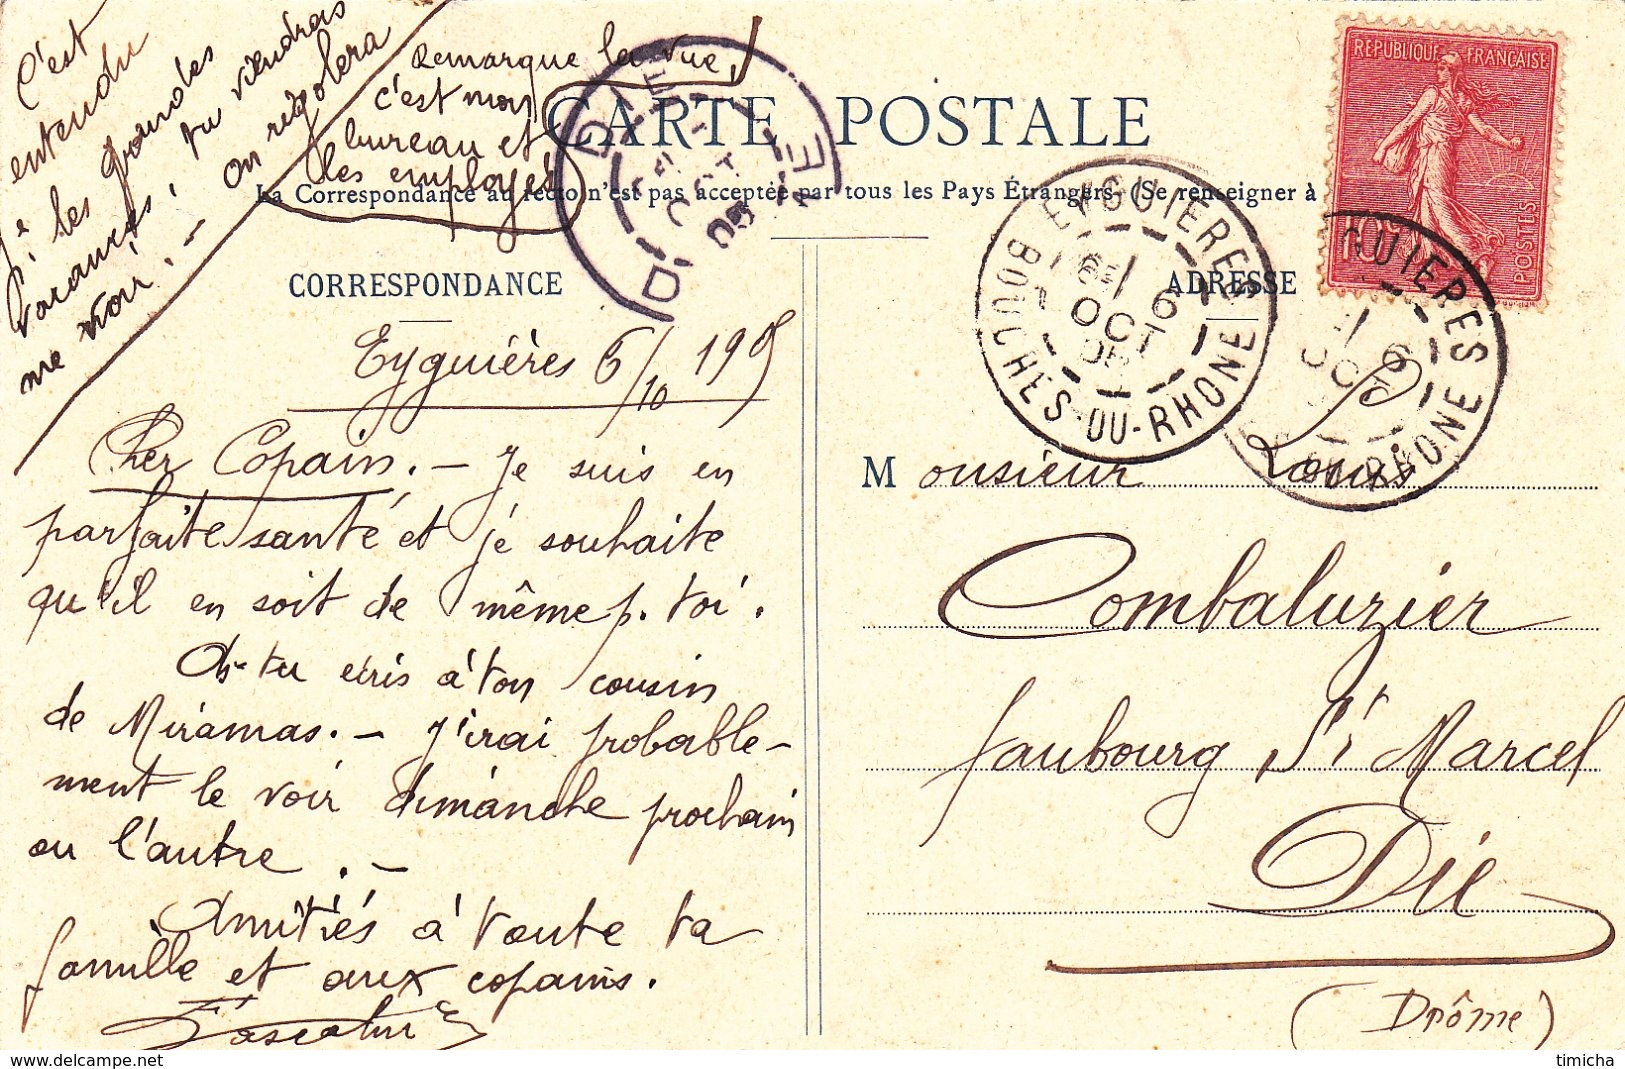 C'est
entendu
je les grandes
vacances, tu viendras
me voir. — on rigolera
Remarque la vue,
c'est mon
bureau et
les employés
CARTE POSTALE
La Correspondance au recto n'est pas acceptée par tous les Pays Étrangers (Se renseigner à
REPUBLIQUE FRANÇAISE
10c
POSTES
DIE
DROME
OCT
05
EYGUIERES
BOUCHES-DU-RHONE
6
OCT
05
EYGUIERES
RHONE
6
OCT
CORRESPONDANCE
Eyguières 6/10 1905
Cher Copain. — Je suis en
parfaite santé et je souhaite
qu'il en soit de même p. toi.
As-tu écris à ton cousin
de Miramas. — J'irai probable-
ment le voir dimanche prochain
ou l'autre. —
Amitiés à toute ta
famille et aux copains.
ADRESSE
Monsieur Louis
Combaluzier
faubourg St Marcel
Die
(Drôme)
delcampe.net
timicha